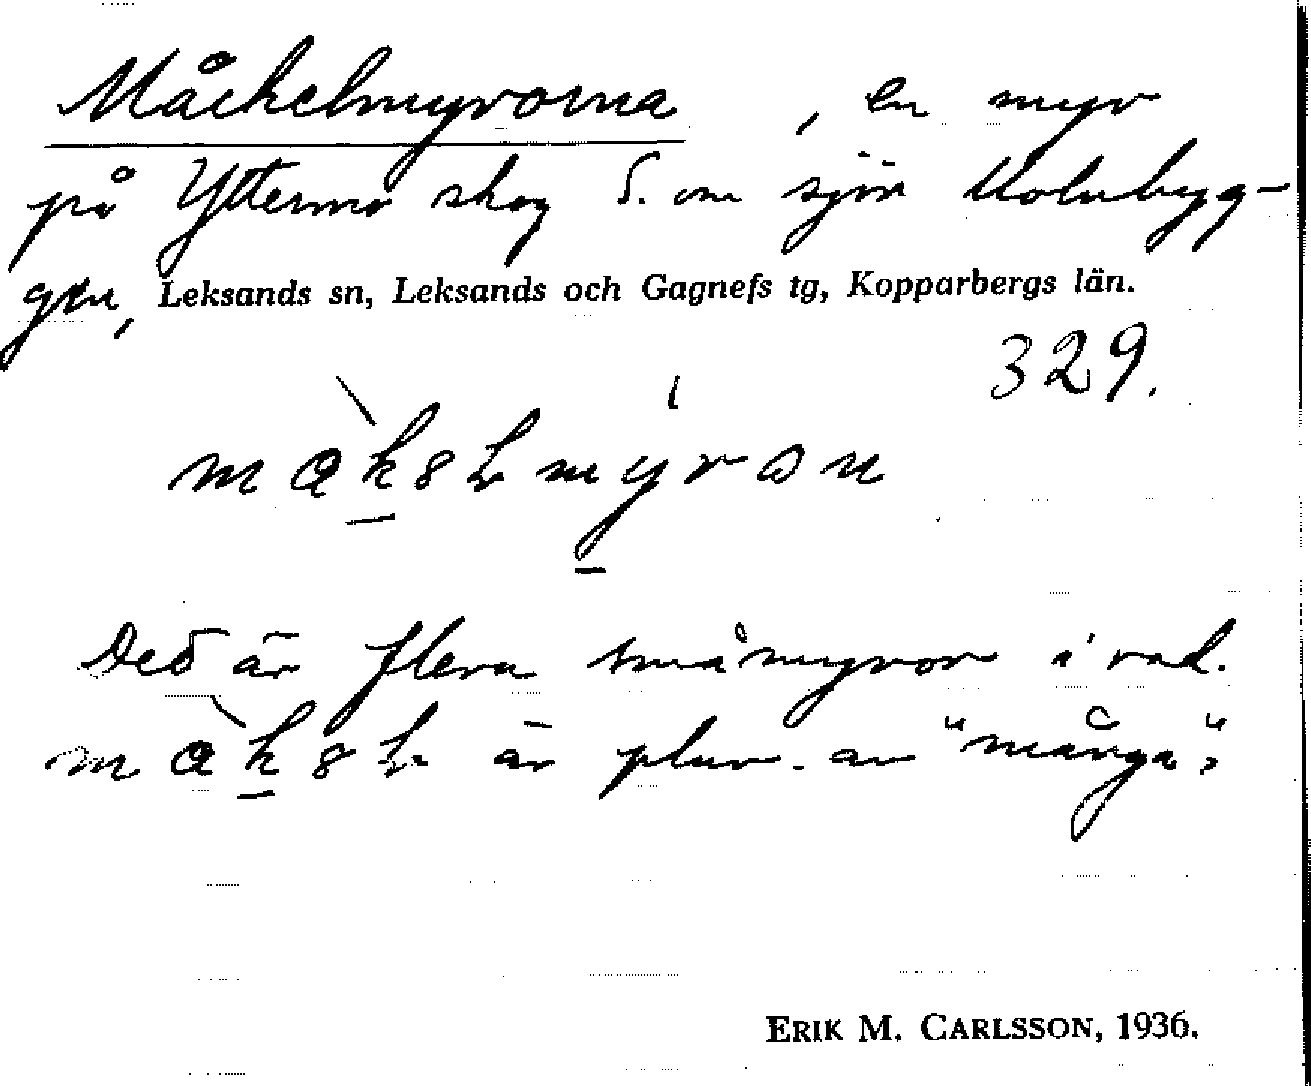 Måckelmyrorna, en myr
på Yttermo skog S. om sjön Kolnbyg-
gen, Leksands sn, Leksands och Gagnefs tg, Kopparbergs län.
329.
Det är flera småmyror i rad.
är plur. av "många".
ERIK M. CARLSSON, 1936.